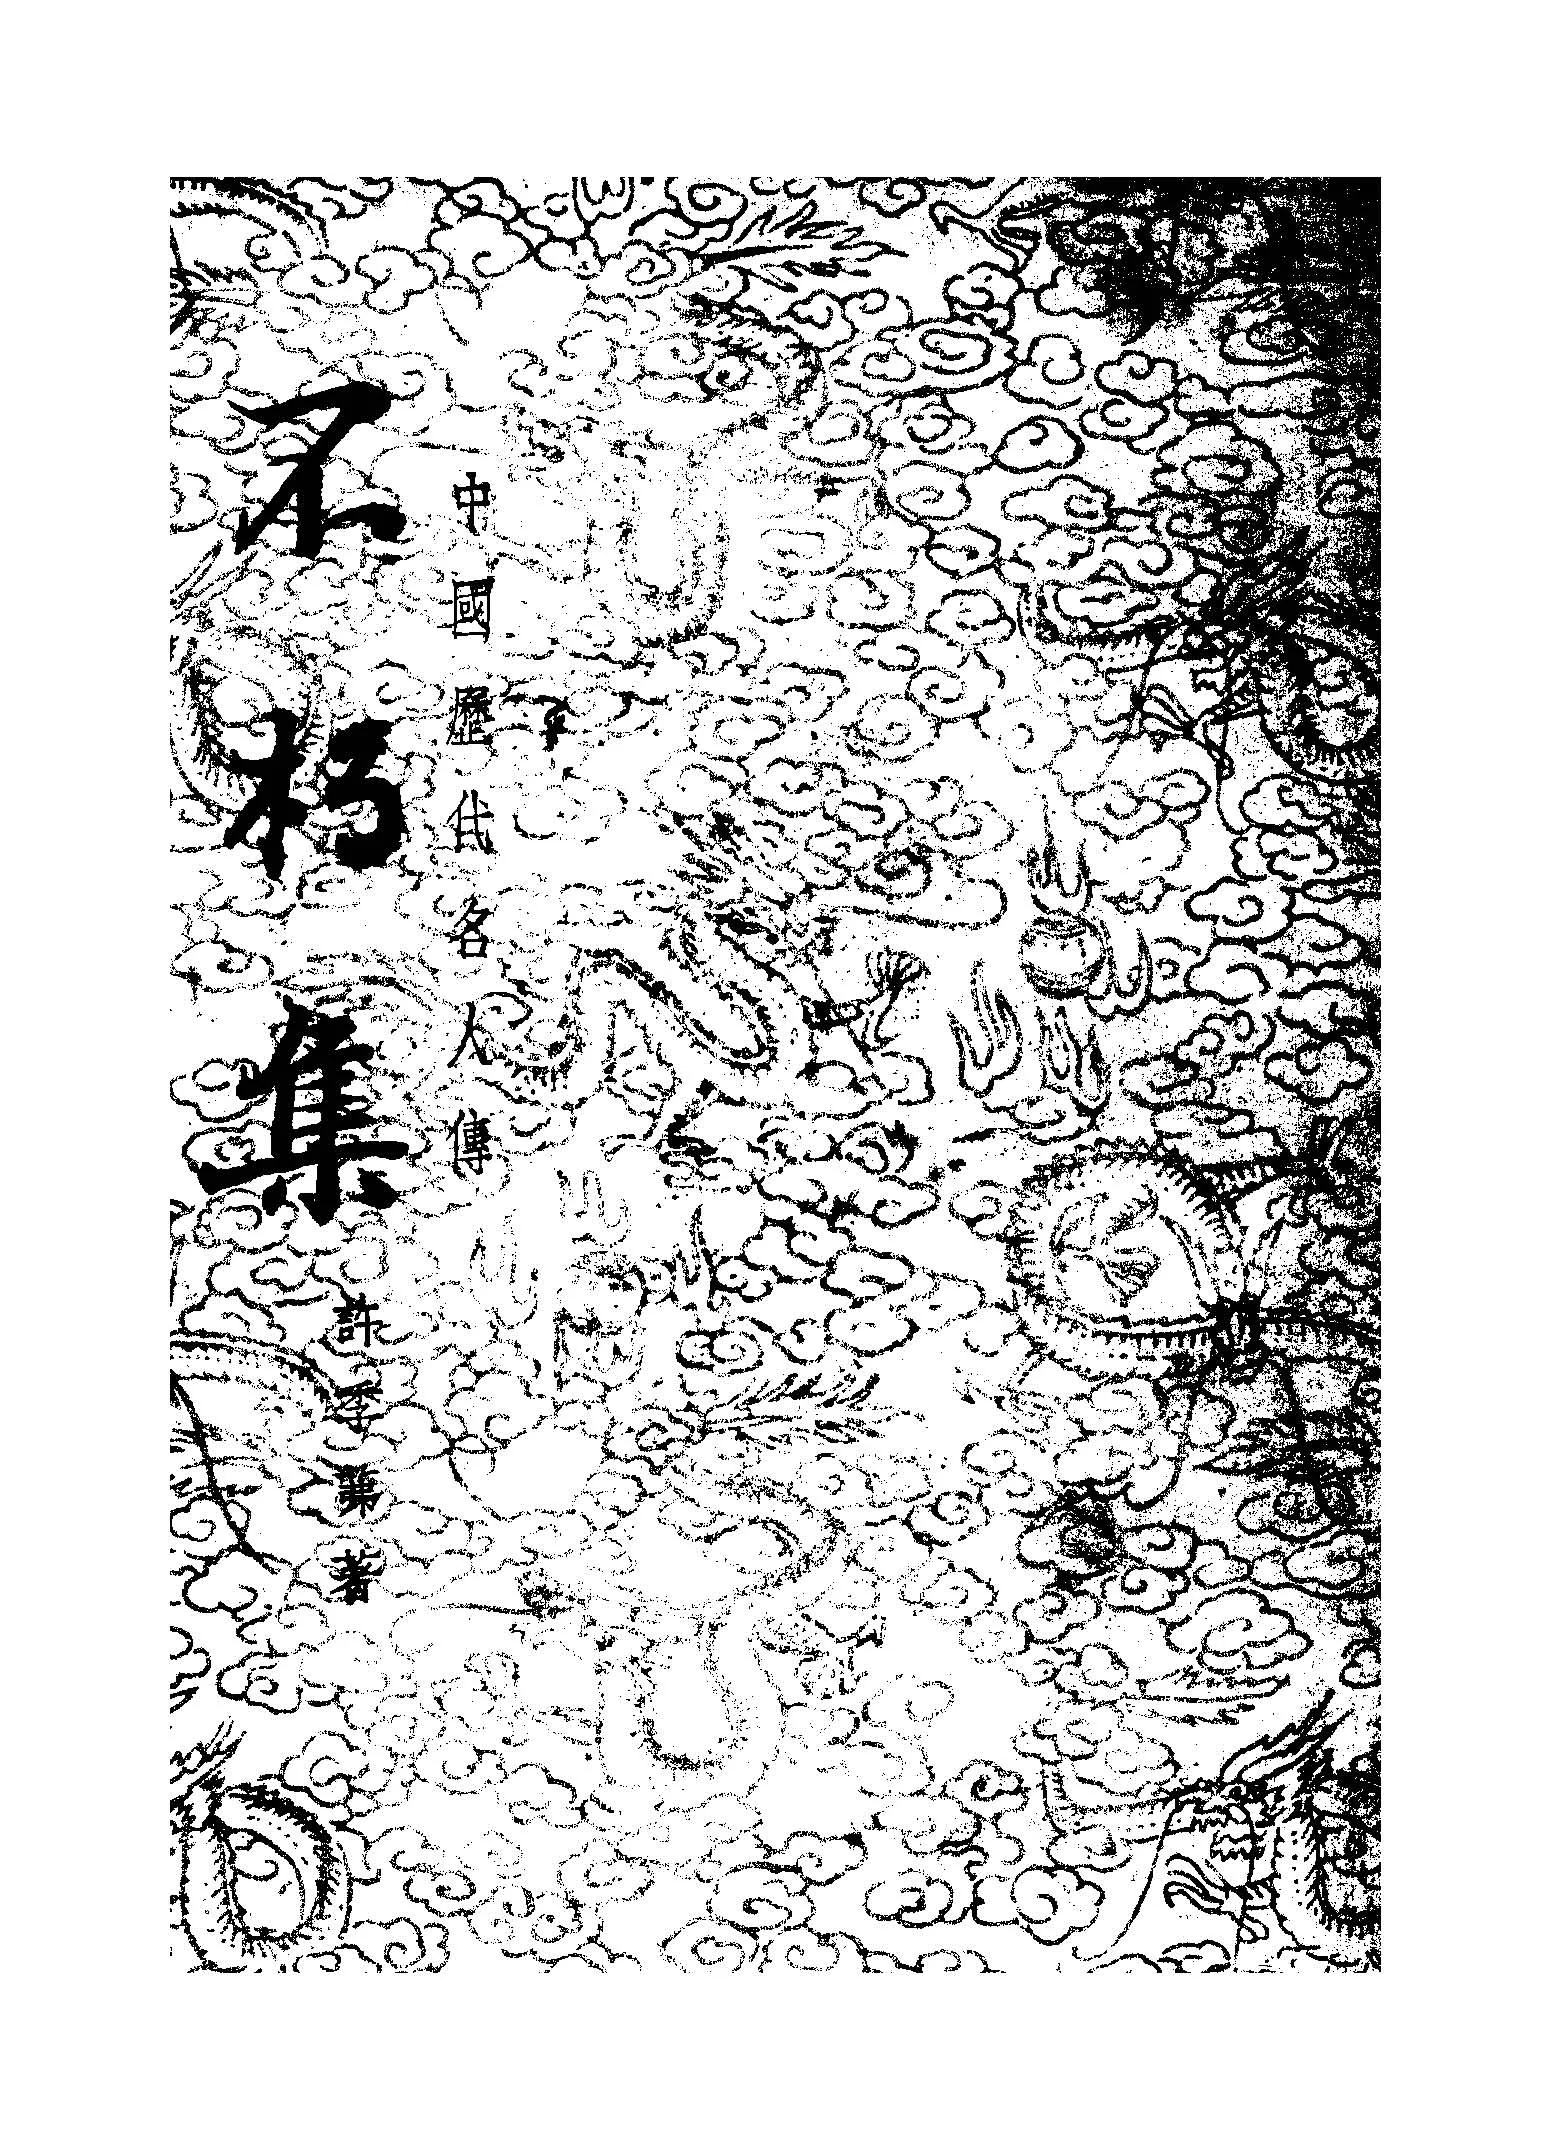 中國歷代名人傳
不朽集
許季茀著